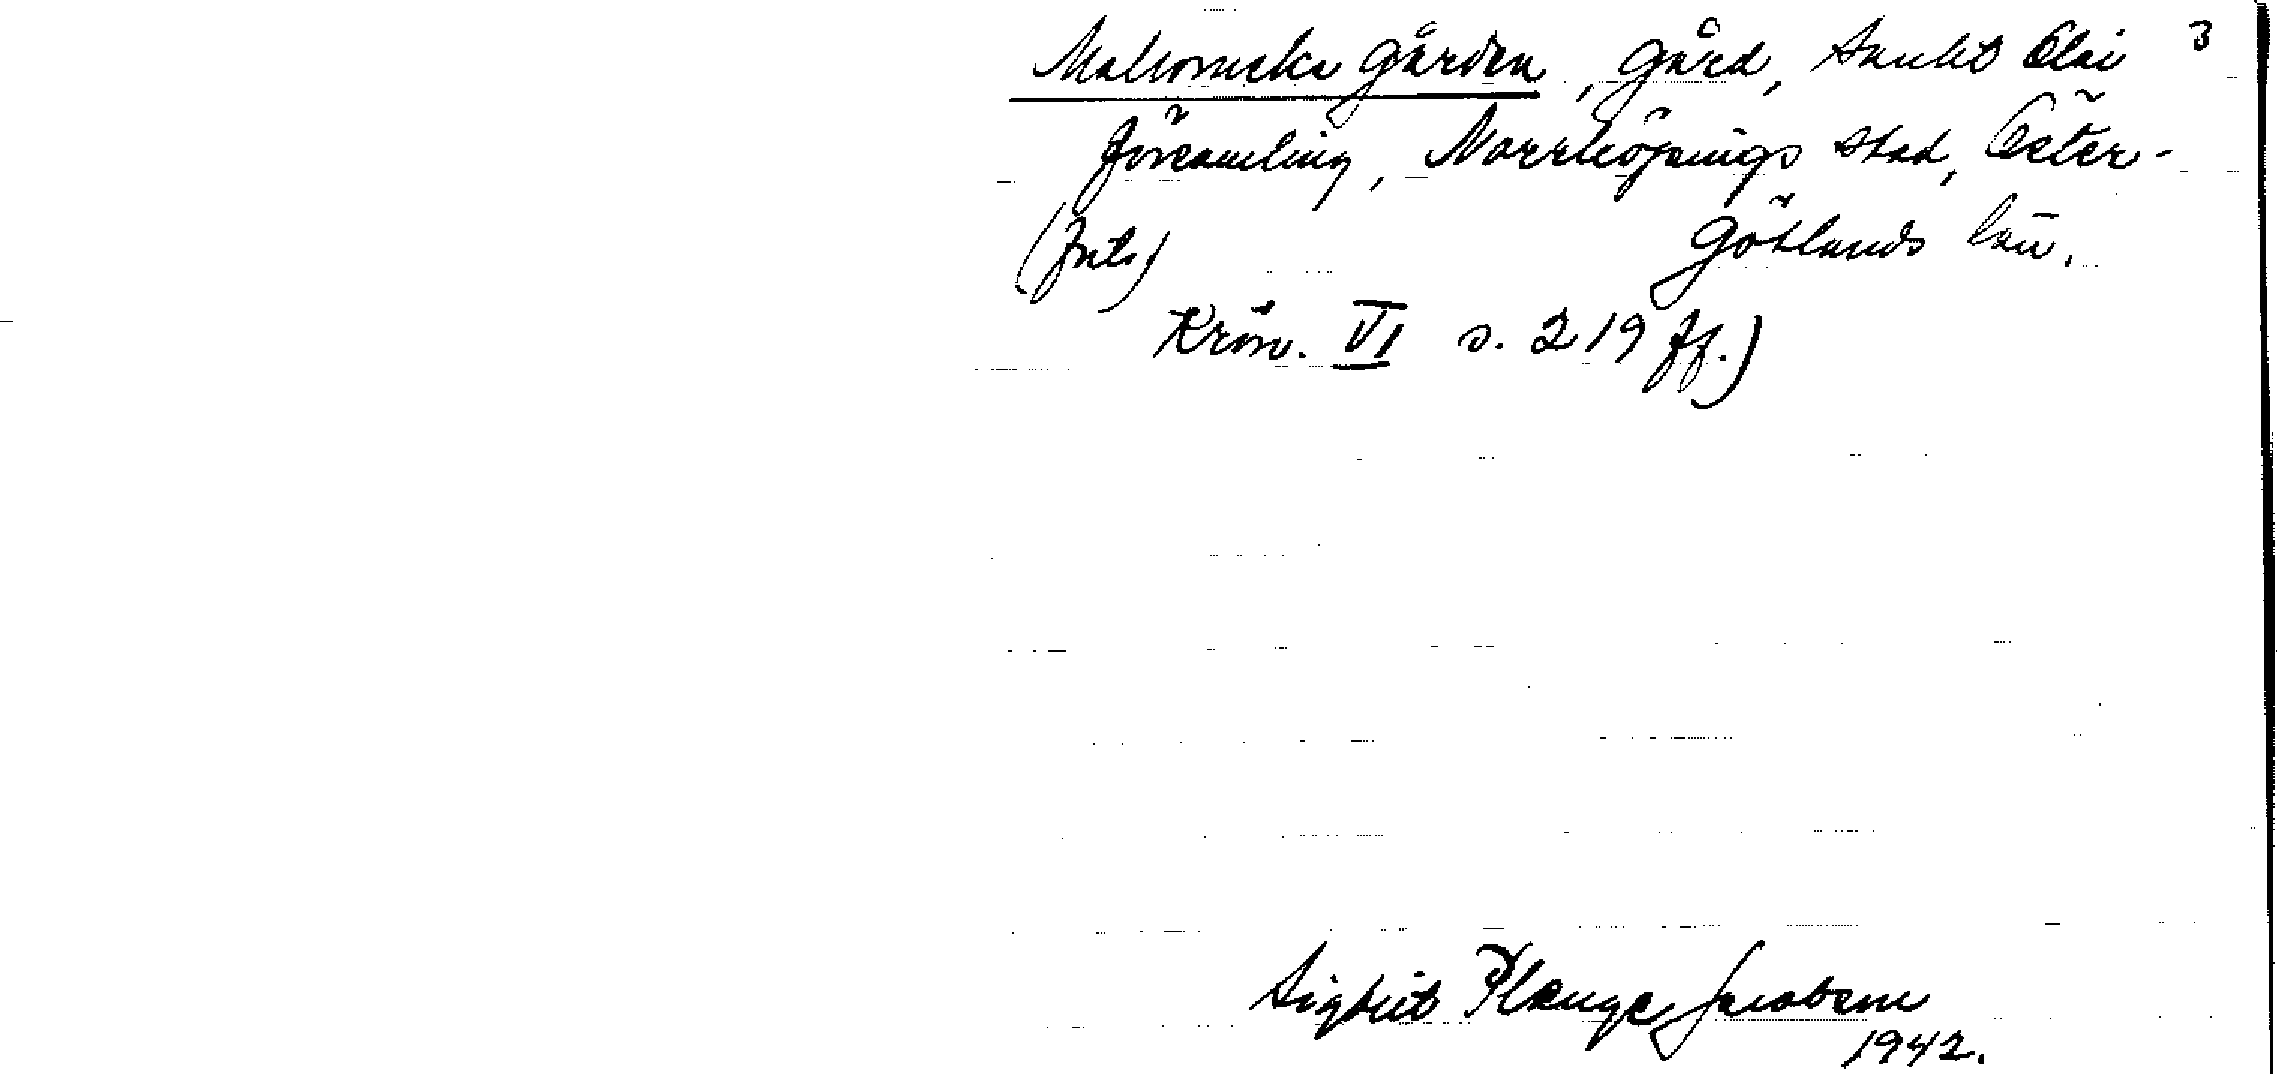 Malromska gården, gård, Sankt Olai 3
församling, Norrköpings stad, Öster-
götlands län.
(Jnls)
Krön. VI s. 219 ff.)
Sigbrit Plænge Jacobson
1942.